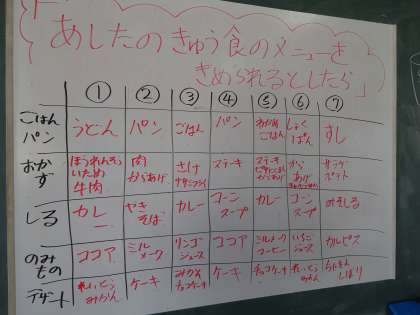 「あしたのきゅう食のメニューを
きめられるとしたら」
① ② ③ ④ ⑤ ⑥ ⑦
ごはん パン うどん パン ごはん パン わかめごはん しょくぱん すし
おかず ほうれんそういため 牛肉 肉 からあげ さけ ステーキ ステーキ からあげ サラダ ポテト
しる カレー やきそば カレー コーンスープ カレー コーンスープ みそしる
のみもの ココア ミルメーク リンゴジュース ココア ミルメークコーヒー いちごジュース カルピス
デザート れいとうみかん ケーキ みかん チョコケーキ ケーキ チョコケーキ れいとうみかん